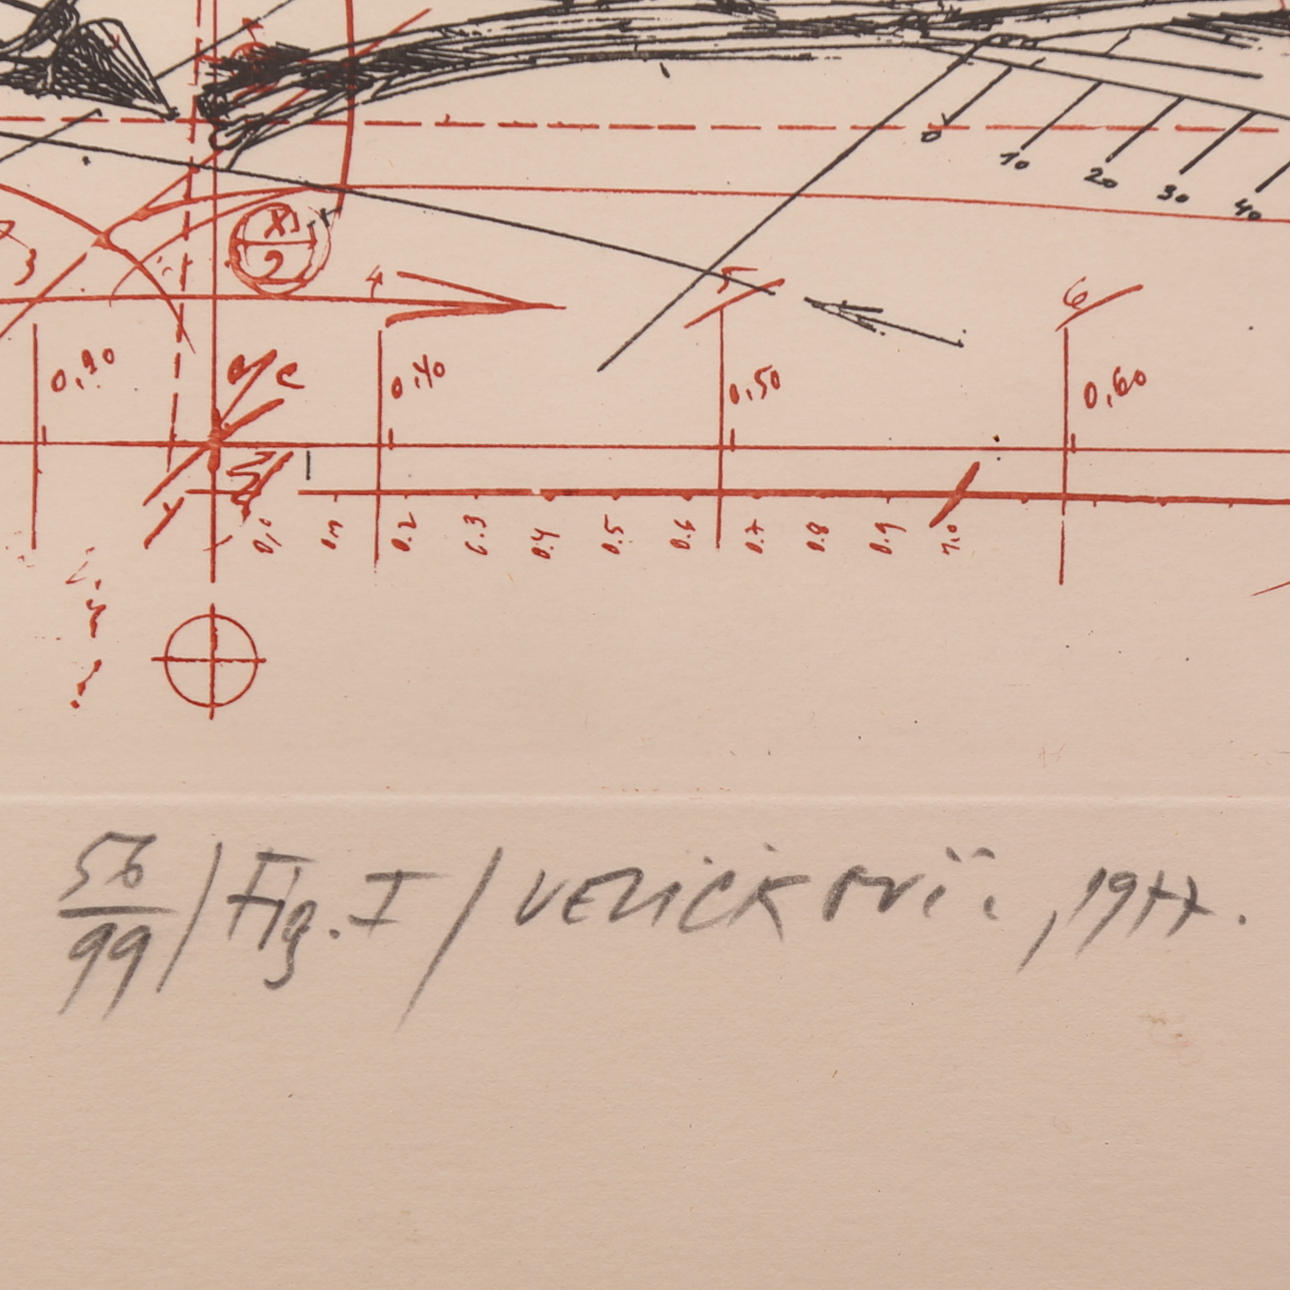 0 10 20 30 40
3 X 2
4 5 6
0,40 0,50 0,60
0,0 0.1 0.2 0.3 0.4 0.5 0.6 0.7 0.8 0.9 1.0
56/99 / Fig. I / VELIČKOVIĆ, 1977.